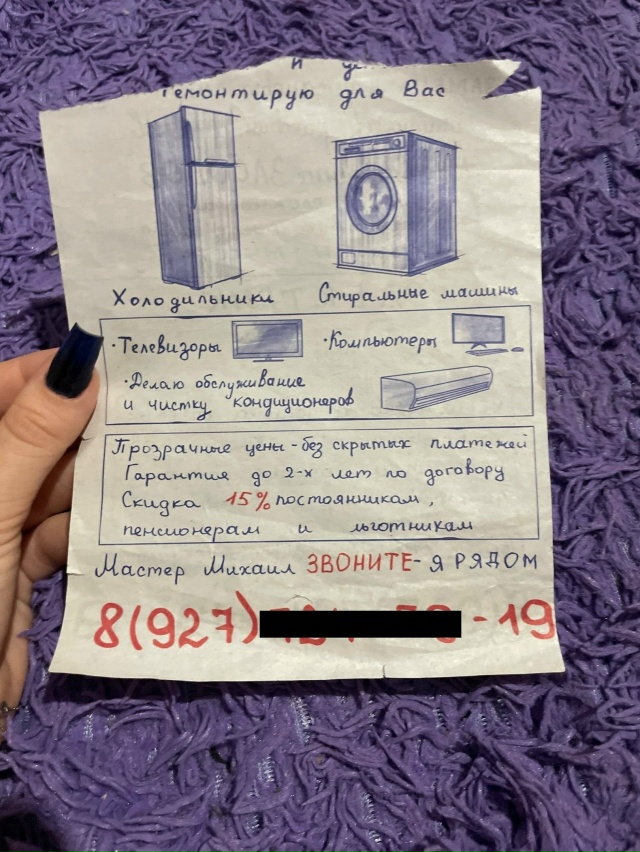 и
Ремонтирую для Вас
Холодильники
Стиральные машины
·Телевизоры
·Компьютеры
·Делаю обслуживание
и чистку кондиционеров
Прозрачные цены - без скрытых платежей
Гарантия до 2-х лет по договору
Скидка 15% постоянникам,
пенсионерам и льготникам
Мастер Михаил ЗВОНИТЕ - Я РЯДОМ
8(927) -19